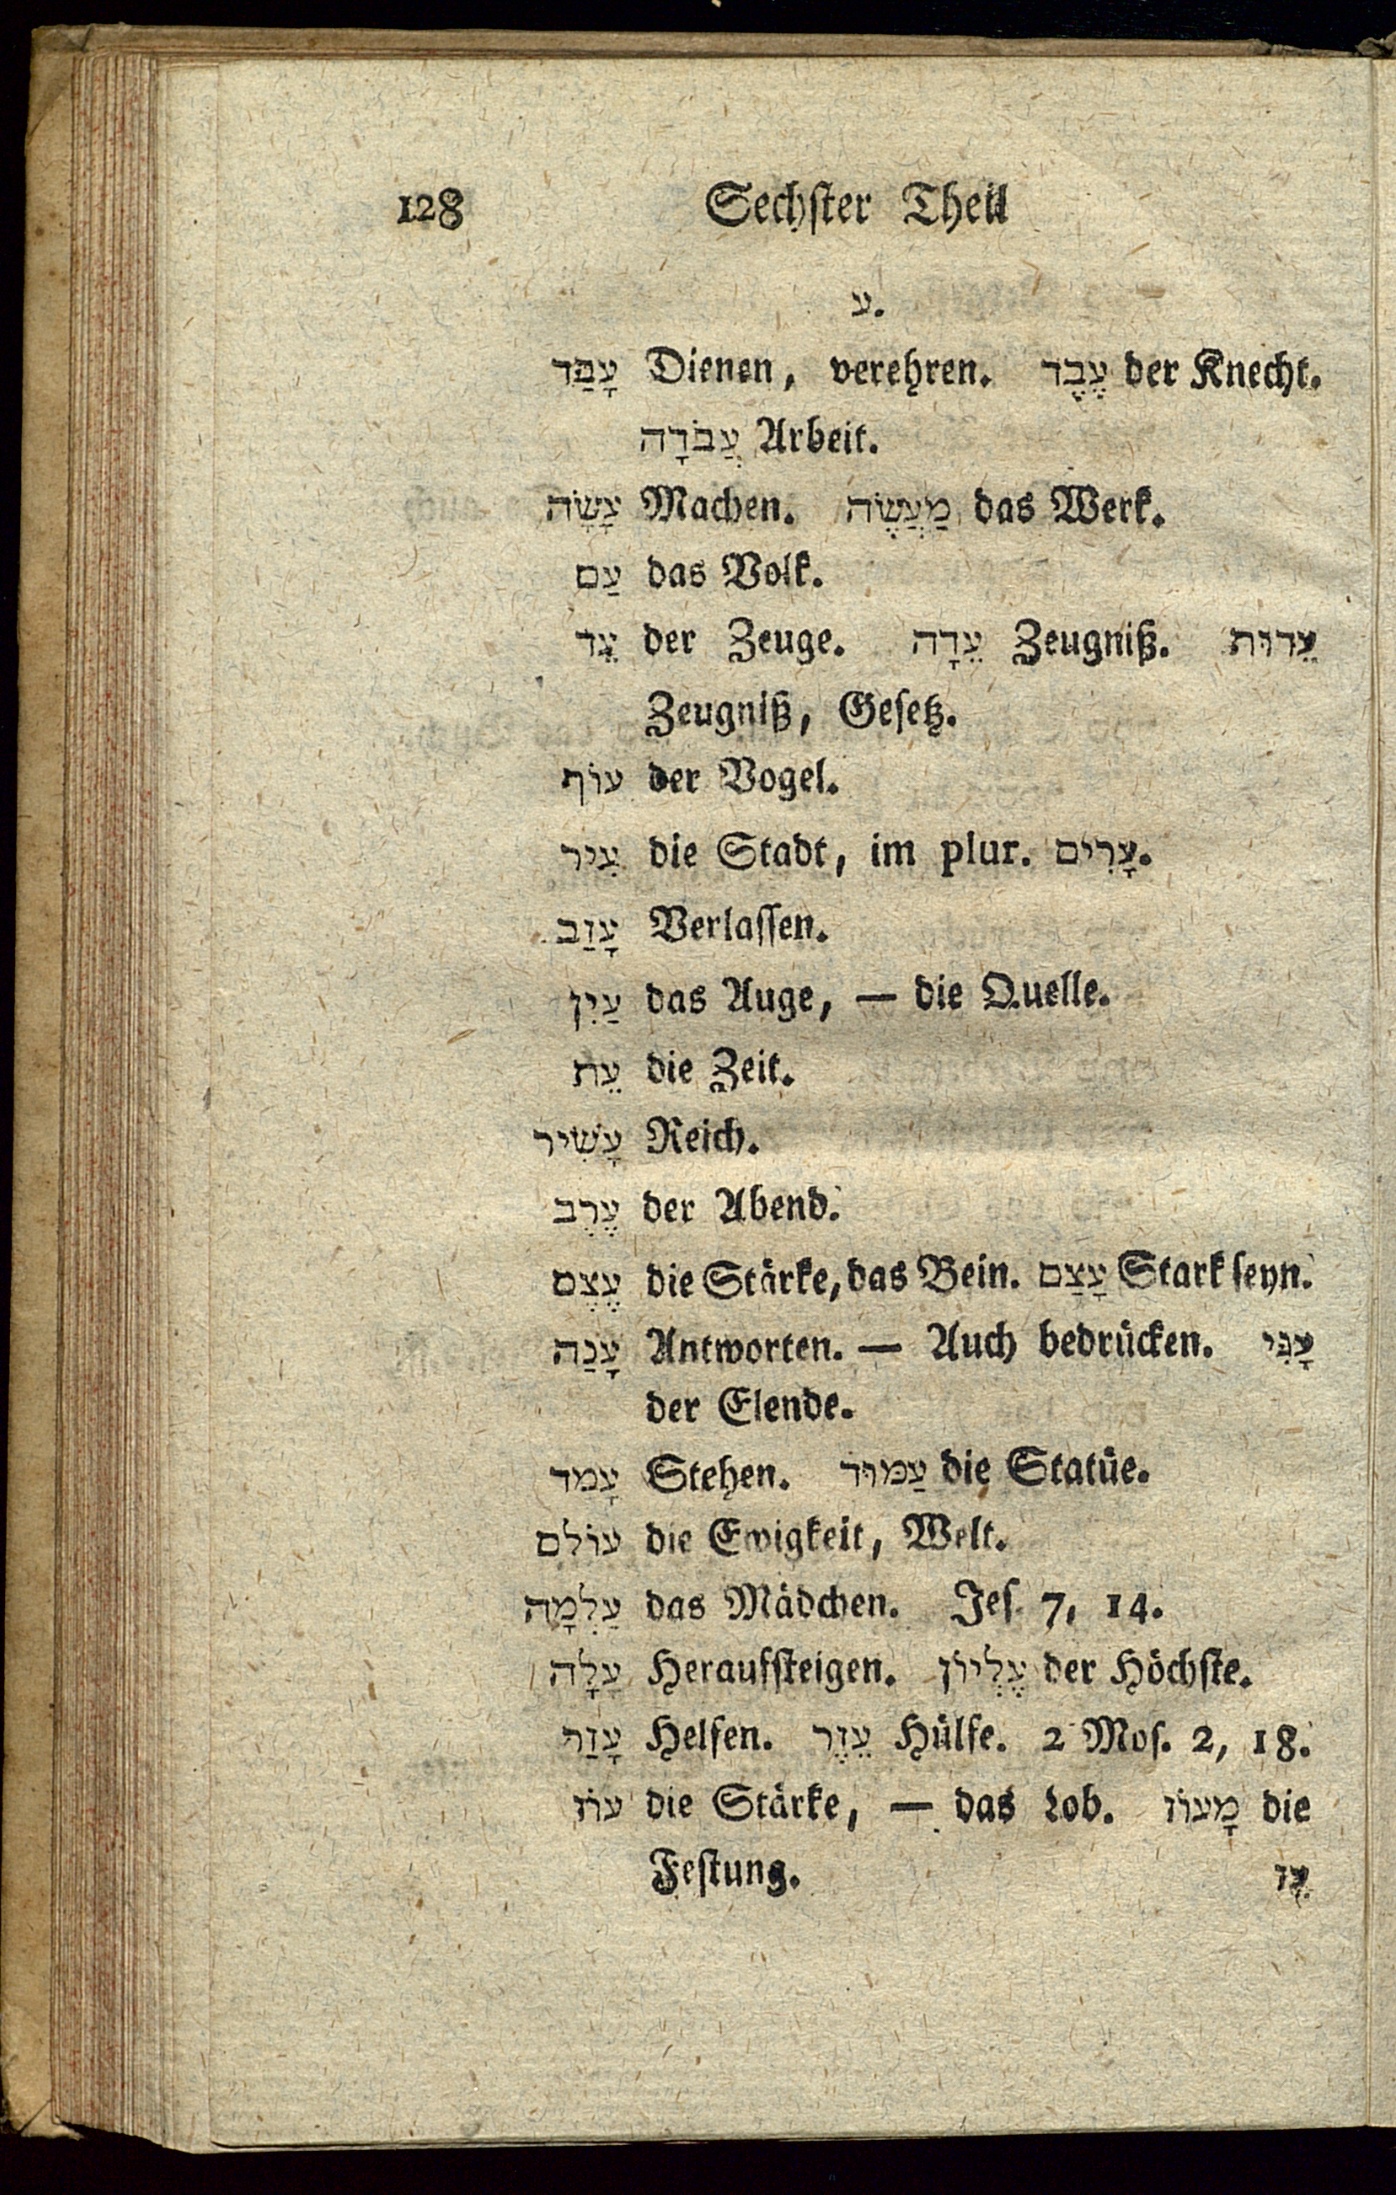 128 Sechster Theil
ע.
עָבַד Dienen, verehren. עֶבֶד der Knecht.
עֲבֹדָה Arbeit.
עָשָׂה Machen. מַעֲשֶׂה das Werk.
עַם das Volk.
עֵד der Zeuge. עֵדָה Zeugniß. עֵדוּת
Zeugniß, Gesetz.
עוֹף der Vogel.
עִיר die Stadt, im plur. עָרִים.
עָזַב Verlassen.
עַיִן das Auge, — die Quelle.
עֵת die Zeit.
עָשִׁיר Reich.
עֶרֶב der Abend.
עֶצֶם die Stärke, das Bein. עָצַם Stark seyn.
עָנַה Antworten. — Auch bedrücken. עָנִי
der Elende.
עָמד Stehen. עַמּוּד die Statüe.
עוֹלם die Ewigkeit, Welt.
עַלְמָה das Mädchen. Jes. 7, 14.
עָלָה Heraufsteigen. עֶלְיוֹן der Höchste.
עָזַר Helfen. עֵזֶר Hülfe. 2 Mos. 2, 18.
עוֹז die Stärke, — das Lob. מָעוֹז die
Festung.